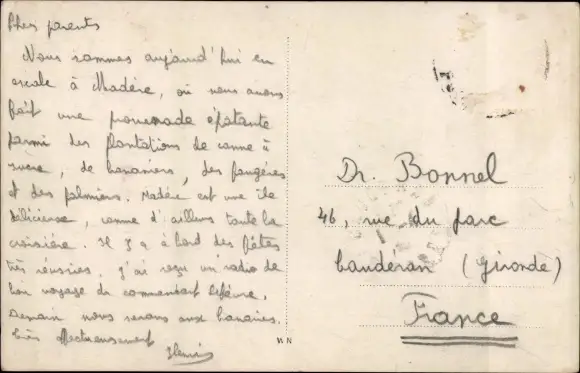 Chers parents
Nous sommes aujourd'hui en
escale à Madère, où nous avons
fait une promenade épatante
parmi des plantations de canne à
sucre, de bananiers, des fougères
et des palmiers. Madère est une île
délicieuse, comme d'ailleurs toute la
croisière. Il y a à bord des fêtes
très réussies, j'ai reçu un radio de
bon voyage du commandant Lefèvre.
Demain nous serons aux Canaries.
très affectueusement
Henri
Dr. Bonnel
46, rue du parc
Caudéran (Gironde)
France